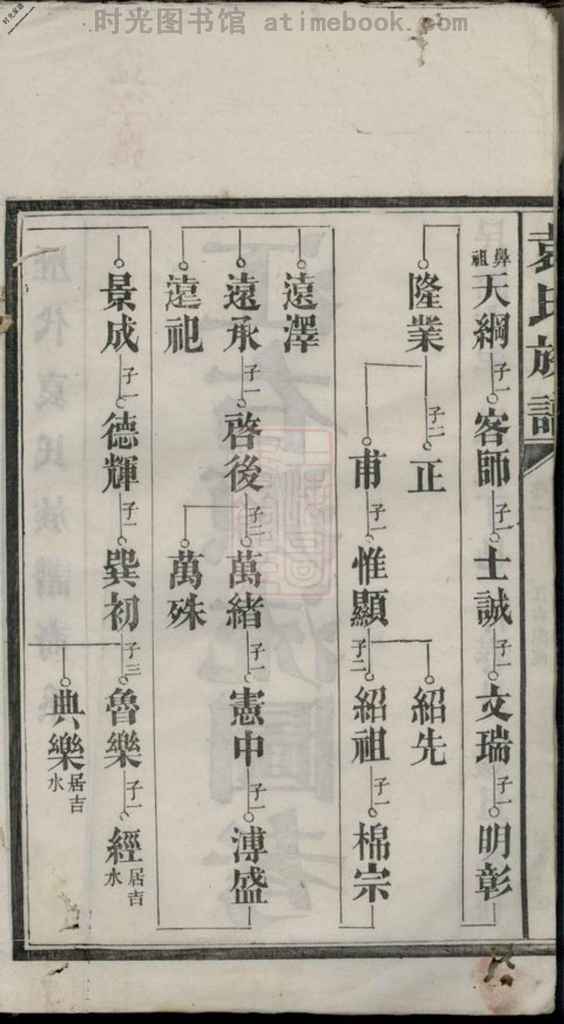 时光图书馆 atimebook.com
袁氏族譜
鼻祖天綱 子一 客師 子一 士誠 子一 文瑞 子一 明彰
隆業 子二 正
紹先
甫 子一 惟顯 子二 紹祖 子一 棉宗
遠澤
遠承 子一 啓後 子二 萬緒 子一 憲中 子一 溥盛
遠祀
萬殊
景成 子一 德輝 子一 巽初 子三 魯樂 子一 經 居吉水
典樂 居吉水